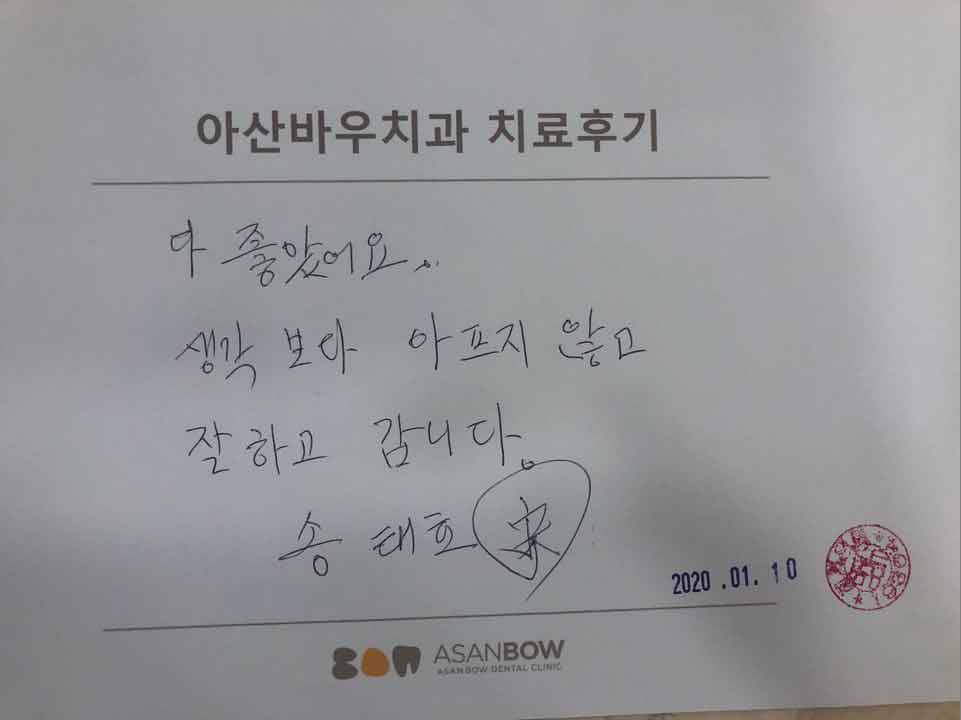 아산바우치과 치료후기
다 좋았어요..
생각 보다 아프지 않고
잘하고 갑니다.
송태호 宋
2020.01.10
ASANBOW
ASANBOW DENTAL CLINIC